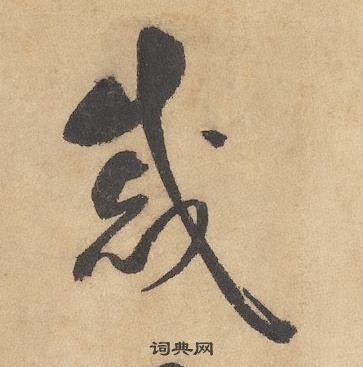 歲
词典网